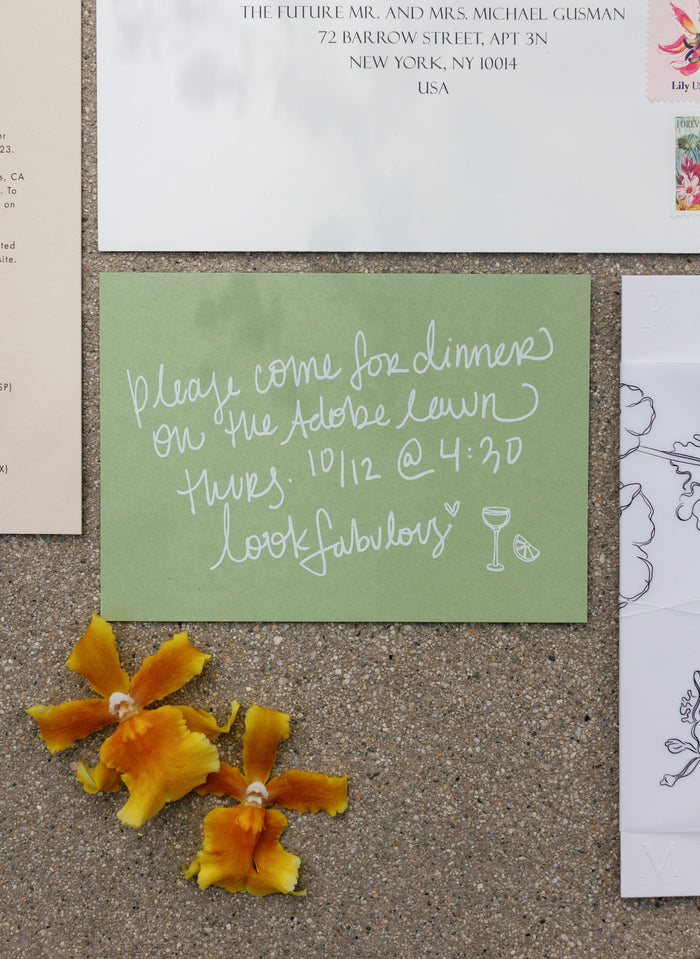 THE FUTURE MR. AND MRS. MICHAEL GUSMAN
72 BARROW STREET, APT 3N
NEW YORK, NY 10014
USA
Lily
FOREVER
23.
s, CA
. To
on
site.
SP)
X)
please come for dinner
on the Adobe lawn
thurs. 10/12 @ 4:30
look fabulous
P
M